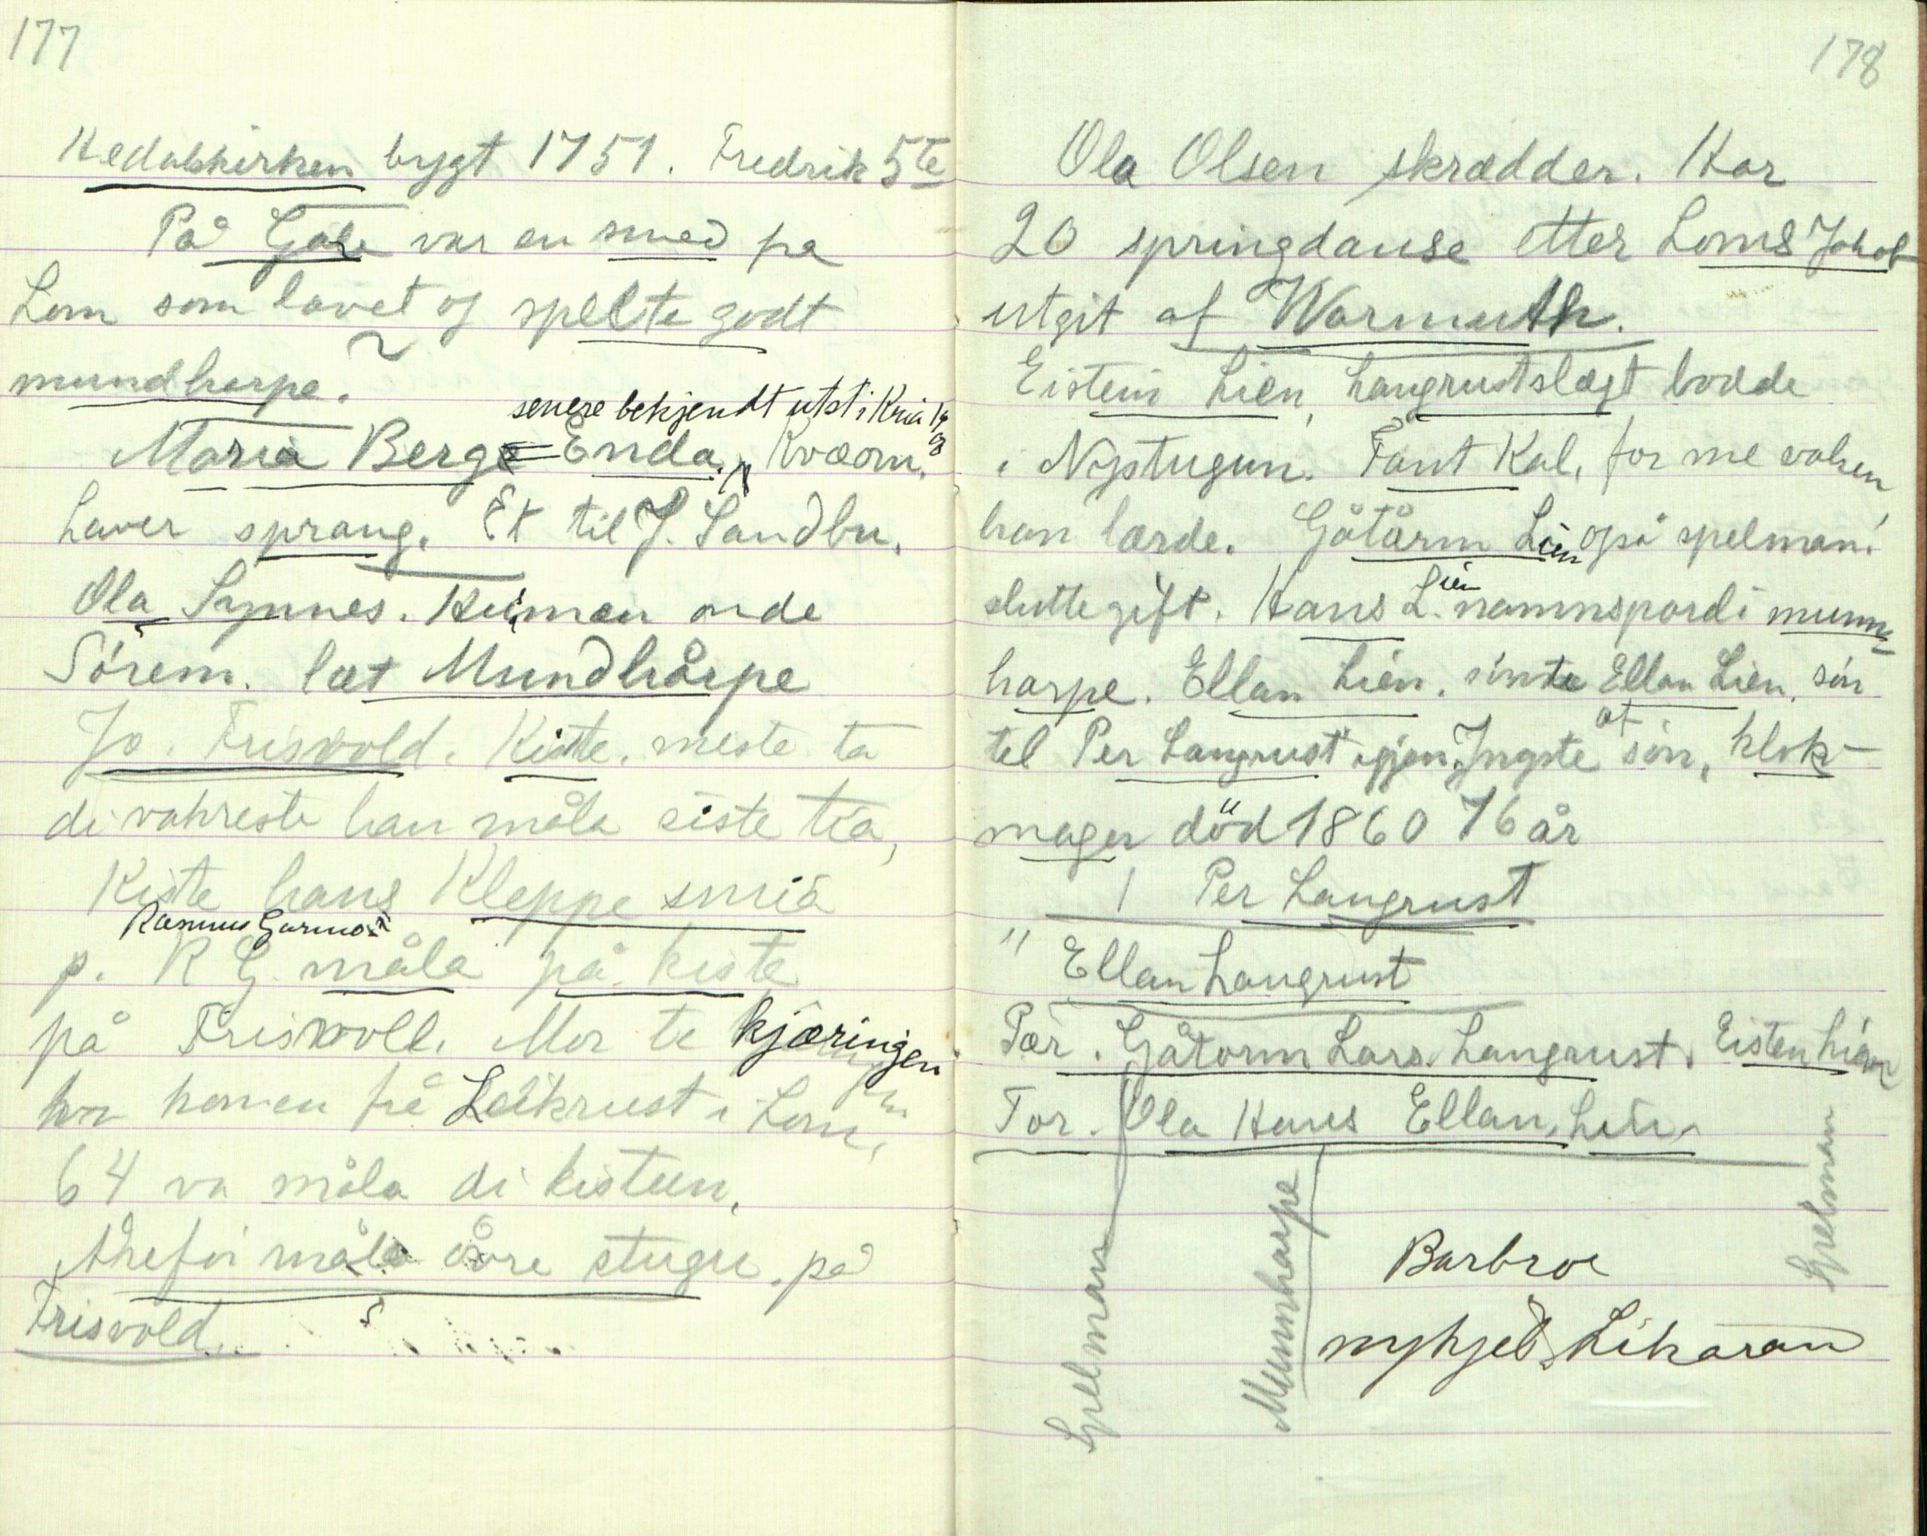 177
Hedalskirken bygt 1751. Fredrik 5te
På Gåle var en smed på
Lom som lavet og spelte godt
mundharpe.
senere bekjendt utst i Kria 19
Maria Berge Enda, Kvæom.
Laver sprang. Et til J. Sandbu.
Ola Synnes. Heiman onde
Sörem. læt Mundhårpe
Jo. Frisvold. Kiste. meste ta
di vakreste han måla siste tia,
Kiste hans Kleppe smiä
Rasmus Garmo
p. R G. måla på kiste
på Frisvoll. Mor te kjæringen
kom frå Leikrust i Lom,
64 va måla di kisteen.
måla övre stugu. på
Frisvold.
178
Ola Olsen skrædder. Har
20 springdanse etter Loms Jakob
utgit af Warmuth.
Eistein Lien, Langrustslægt bodde
i Nystugun. Fant Kal, for me vaksen
han lærde. Gåtårm Lien opi spelman
sluttegift. Hans L. Lien namnspordi munn=
harpe. Ellan Lien. sönte Ellan Lien. sön
tel Per Langrust igjen. Yngste af sön, klok-
mager död 1860 76 år
1 Per Langrust
" Ellan Langrust
Pær. Gåtorm Lars. Langrust. Eisten Lien
Tor. Ola Hans Ellan. Lien
Spelman
Munnharpe
Spelman
Barbroe
nykjel. Likaran